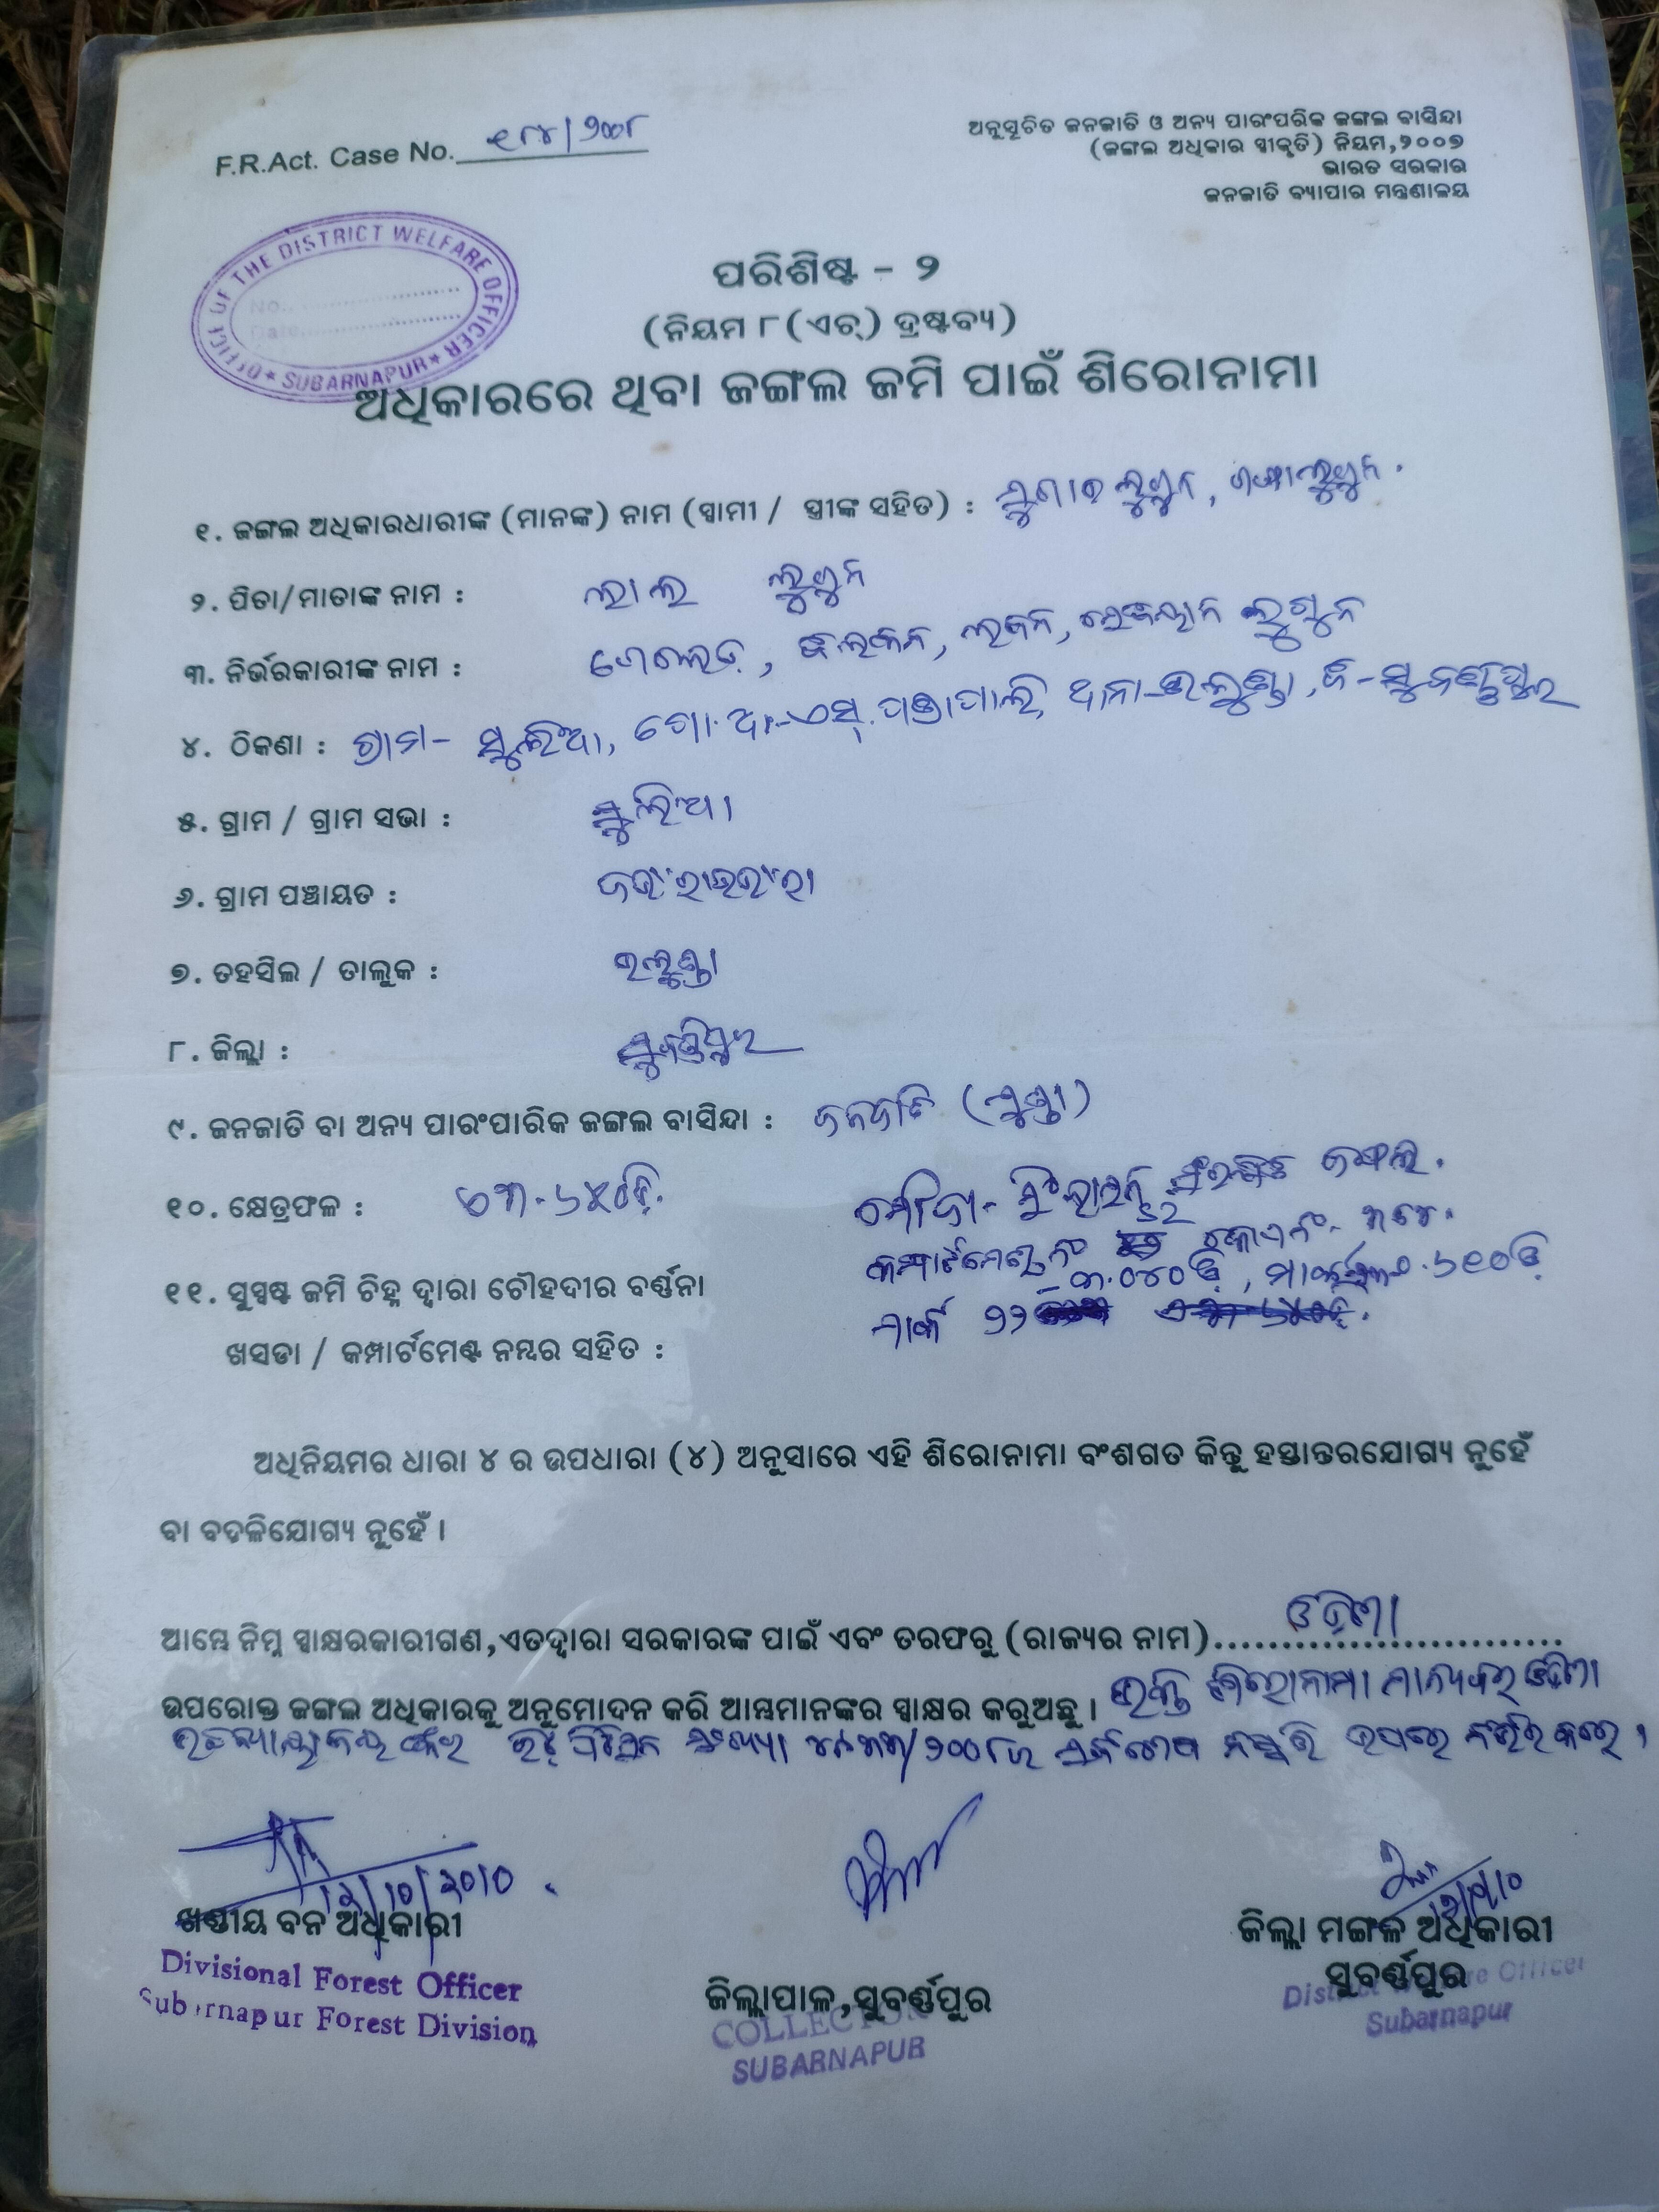 F.R.Act. Case No. ୧୮୪/୨୦୦୮
ଅନୁସୂଚିତ ଜନଜାତି ଓ ଅନ୍ୟ ପାରଂପରିକ ଜଙ୍ଗଲ ବାସିନ୍ଦା
(ଜଙ୍ଗଲ ଅଧିକାର ସ୍ୱୀକୃତି) ନିୟମ,୨୦୦୭
ଭାରତ ସରକାର
ଜନଜାତି ବ୍ୟାପାର ମନ୍ତ୍ରଣାଳୟ
OFFICE OF THE DISTRICT WELFARE OFFICER
No.
Date
SUBARNAPUR
ପରିଶିଷ୍ଟ - ୨
(ନିୟମ ୮(ଏଚ୍) ଦ୍ରଷ୍ଟବ୍ୟ)
ଅଧିକାରରେ ଥିବା ଜଙ୍ଗଲ ଜମି ପାଇଁ ଶିରୋନାମା
୧. ଜଙ୍ଗଲ ଅଧିକାରଧାରୀଙ୍କ (ମାନଙ୍କ) ନାମ (ସ୍ୱାମୀ / ସ୍ତ୍ରୀଙ୍କ ସହିତ) :
୨. ପିତା/ମାତାଙ୍କ ନାମ : ଲାଲ ଲୁଗୁନ
୩. ନିର୍ଭରକାରୀଙ୍କ ନାମ : ଲୁଗୁନ
୪. ଠିକଣା : ଗ୍ରାମ- ସୁଲିଆ, ପୋ.ଅ.-ଏସ୍.ପଣ୍ଡାପାଲି, ଥାନା-ଉଲୁଣ୍ଡା, ଜି-ସୁବର୍ଣ୍ଣପୁର
୫. ଗ୍ରାମ / ଗ୍ରାମ ସଭା : ସୁଲିଆ
୬. ଗ୍ରାମ ପଞ୍ଚାୟତ :
୭. ତହସିଲ / ତାଲୁକ : ଉଲୁଣ୍ଡା
୮. ଜିଲ୍ଲା : ସୁବର୍ଣ୍ଣପୁର
୯. ଜନଜାତି ବା ଅନ୍ୟ ପାରଂପାରିକ ଜଙ୍ଗଲ ବାସିନ୍ଦା : ଜନଜାତି (ମୁଣ୍ଡା)
୧୦. କ୍ଷେତ୍ରଫଳ :
ମୌଜା- ସଂରକ୍ଷିତ ଜଙ୍ଗଲ.
୧୧. ସୁସ୍ପଷ୍ଟ ଜମି ଚିହ୍ନ ଦ୍ୱାରା ଚୌହଦୀର ବର୍ଣ୍ଣନା କମ୍ପାର୍ଟମେଣ୍ଟ ନଂ
ଖସଡା / କମ୍ପାର୍ଟମେଣ୍ଟ ନମ୍ବର ସହିତ : ମାର୍କ ୨୨
ଅଧିନିୟମର ଧାରା ୪ ର ଉପଧାରା (୪) ଅନୁସାରେ ଏହି ଶିରୋନାମା ବଂଶଗତ କିନ୍ତୁ ହସ୍ତାନ୍ତରଯୋଗ୍ୟ ନୁହେଁ
ବା ବଦଳିଯୋଗ୍ୟ ନୁହେଁ ।
ଆମ୍ଭେ ନିମ୍ନ ସ୍ୱାକ୍ଷରକାରୀଗଣ,ଏତଦ୍ୱାରା ସରକାରଙ୍କ ପାଇଁ ଏବଂ ତରଫରୁ (ରାଜ୍ୟର ନାମ) ଓଡ଼ିଶା
ଉପରୋକ୍ତ ଜଙ୍ଗଲ ଅଧିକାରକୁ ଅନୁମୋଦନ କରି ଆମ୍ଭମାନଙ୍କର ସ୍ୱାକ୍ଷର କରୁଅଛୁ । ଉକ୍ତ ଶିରୋନାମା ମାନ୍ୟବର ଓଡ଼ିଶା
ଉଚ୍ଚନ୍ୟାୟାଳୟଙ୍କର ରିଟ୍ ପିଟିସନ ସଂଖ୍ୟା ୪୯୩୩/୨୦୦୮ର ଉପରେ ନିର୍ଭର କରେ ।
12/10/2010
ଖଣ୍ଡୀୟ ବନ ଅଧିକାରୀ
Divisional Forest Officer
Subarnapur Forest Division
ଜିଲ୍ଲାପାଳ,ସୁବର୍ଣ୍ଣପୁର
COLLECTOR
SUBARNAPUR
ଜିଲ୍ଲା ମଙ୍ଗଳ ଅଧିକାରୀ
ସୁବର୍ଣ୍ଣପୁର
District Welfare Officer
Subarnapur